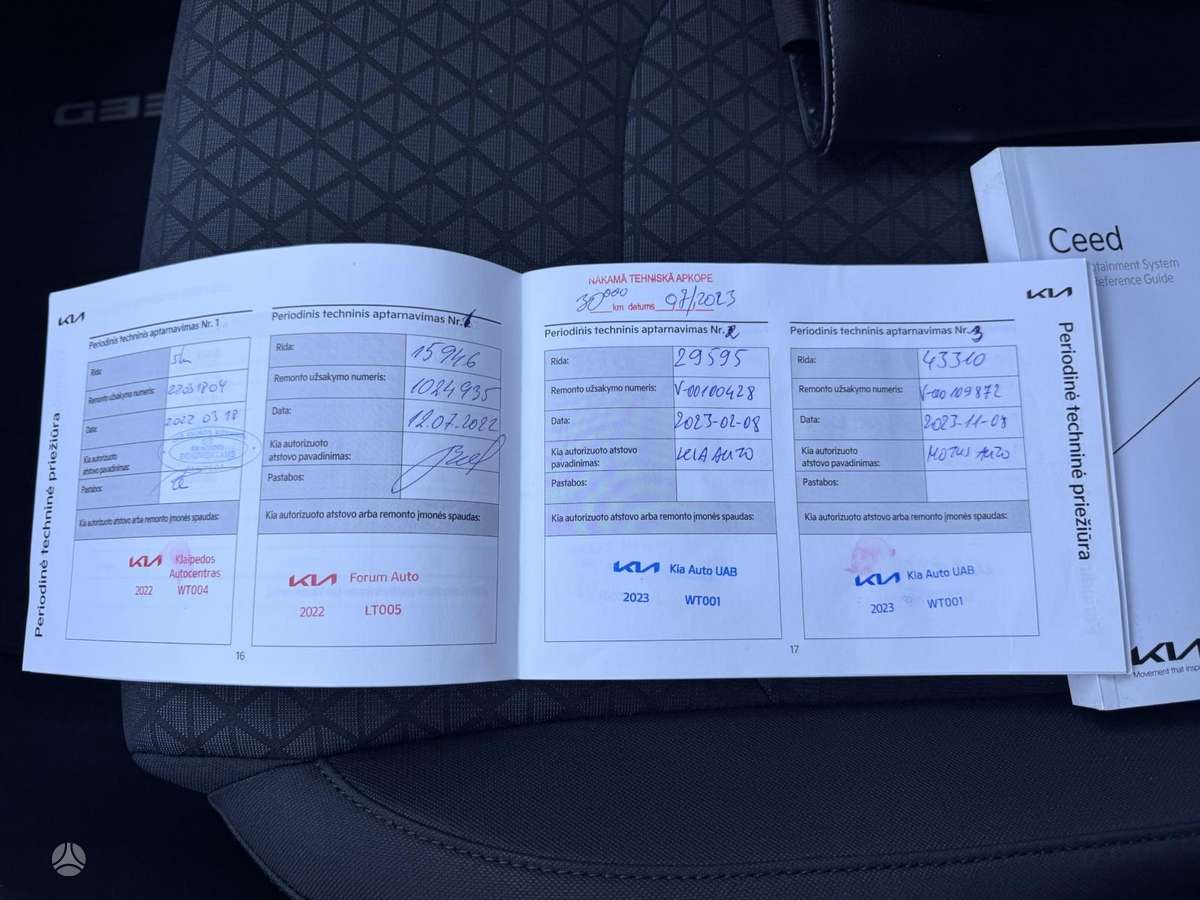 CEED
Ceed
Infotainment System
Reference Guide
KIA
Movement that inspires
KIA
Periodinė techninė priežiūra
Periodinis techninis aptarnavimas Nr. 1
Rida:
Remonto užsakymo numeris:
Data: 2022 03 18
Kia autorizuoto
atstovo pavadinimas:
Pastabos:
Kia autorizuoto atstovo arba remonto įmonės spaudas:
KIA Klaipedos
Autocentras
2022 WT004
Periodinis techninis aptarnavimas Nr. 1
Rida: 15946
Remonto užsakymo numeris: 1024935
Data: 12.07.2022
Kia autorizuoto
atstovo pavadinimas:
Pastabos:
Kia autorizuoto atstovo arba remonto įmonės spaudas:
KIA Forum Auto
2022 LT005
16
NĀKAMĀ TEHNISKĀ APKOPE
30000 km datums 07/2023
Periodinis techninis aptarnavimas Nr. 2
Rida: 29595
Remonto užsakymo numeris: V-00100428
Data: 2023-02-08
Kia autorizuoto atstovo
pavadinimas: KIA AUTO
Pastabos:
Kia autorizuoto atstovo arba remonto įmonės spaudas:
KIA Kia Auto UAB
2023 WT001
Periodinis techninis aptarnavimas Nr. 3
Rida: 43310
Remonto užsakymo numeris: V-00109872
Data: 2023-11-08
Kia autorizuoto
atstovo pavadinimas: MOTUS AUTO
Pastabos:
Kia autorizuoto atstovo arba remonto įmonės spaudas:
KIA Kia Auto UAB
2023 WT001
17
KIA
Periodinė techninė priežiūra